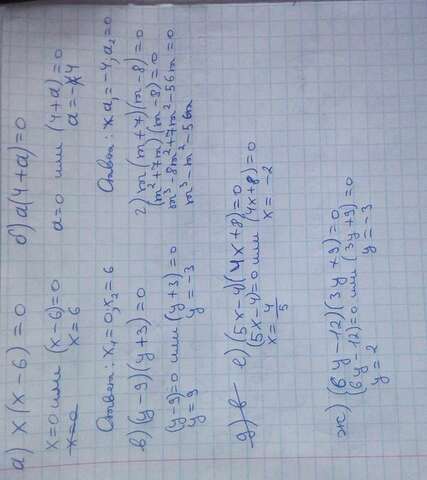 а) x(x-6)=0
x=0 или (x-6)=0
x=0 x=6
Ответ: x₁=0, x₂=6
б) a(4+a)=0
a=0 или (4+a)=0
a=-4
Ответ: a₁=-4, a₂=0
в) (y-9)(y+3)=0
(y-9)=0 или (y+3)=0
y=9 y=-3
г) m(m+7)(m-8)=0
(m²+7m)(m-8)=0
m³-8m²+7m²-56m=0
m³-m²-56m
д) в
е) (5x-4)(4x+8)=0
(5x-4)=0 или (4x+8)=0
x=4/5 x=-2
ж) (6y-12)(3y+9)=0
(6y-12)=0 или (3y+9)=0
y=2 y=-3